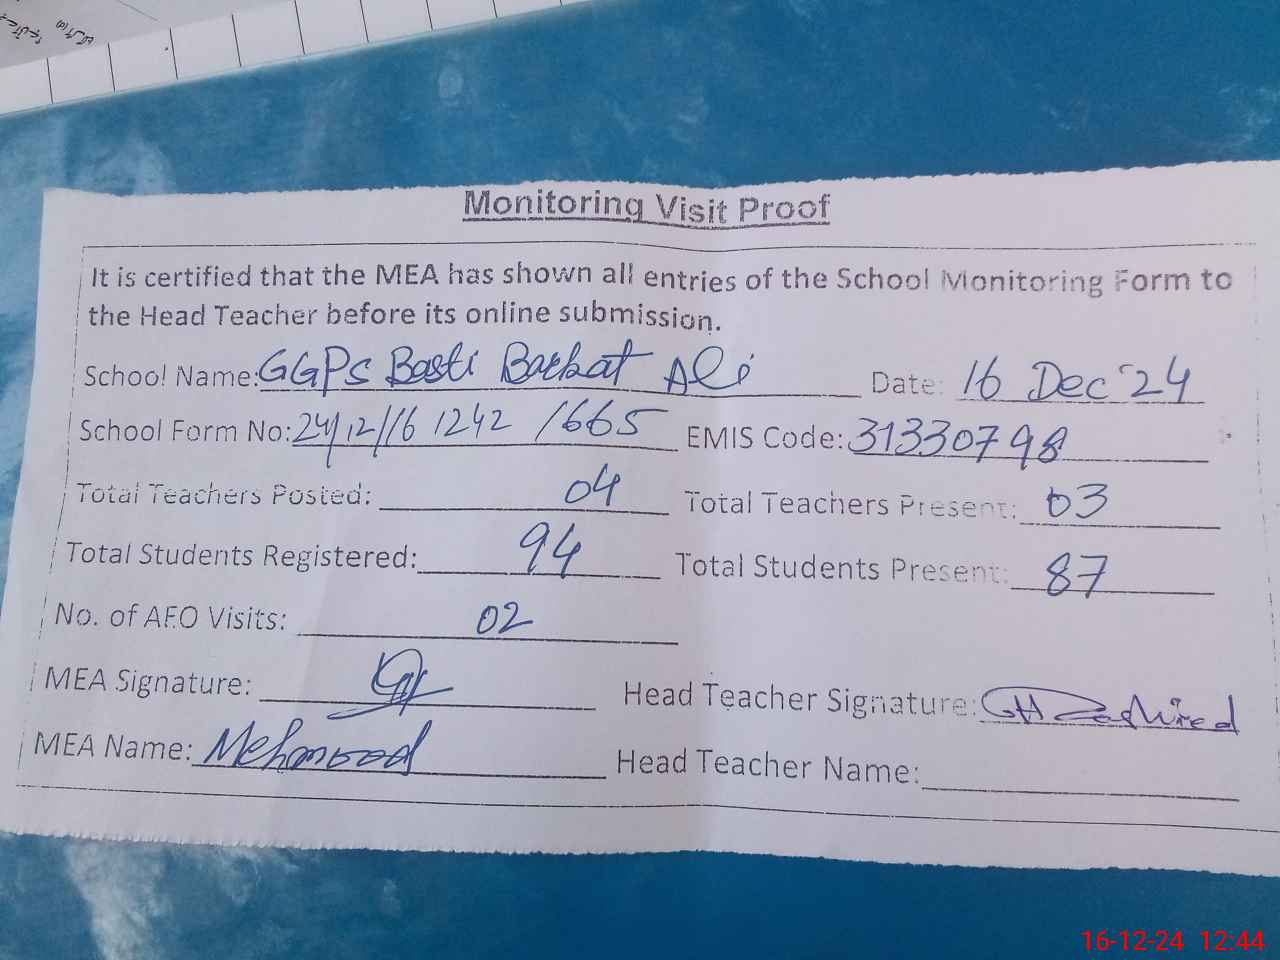 Monitoring Visit Proof
It is certified that the MEA has shown all entries of the School Monitoring Form to
the Head Teacher before its online submission.
School Name: GGPS Basti Barkat Ali Date: 16 Dec '24
School Form No: 24/12/16 1242 /665 EMIS Code: 31330798
Total Teachers Posted: 04 Total Teachers Present: 03
Total Students Registered: 94 Total Students Present: 87
No. of AEO Visits: 02
MEA Signature: Head Teacher Signature:
MEA Name: Mehmood Head Teacher Name:
16-12-24 12:44